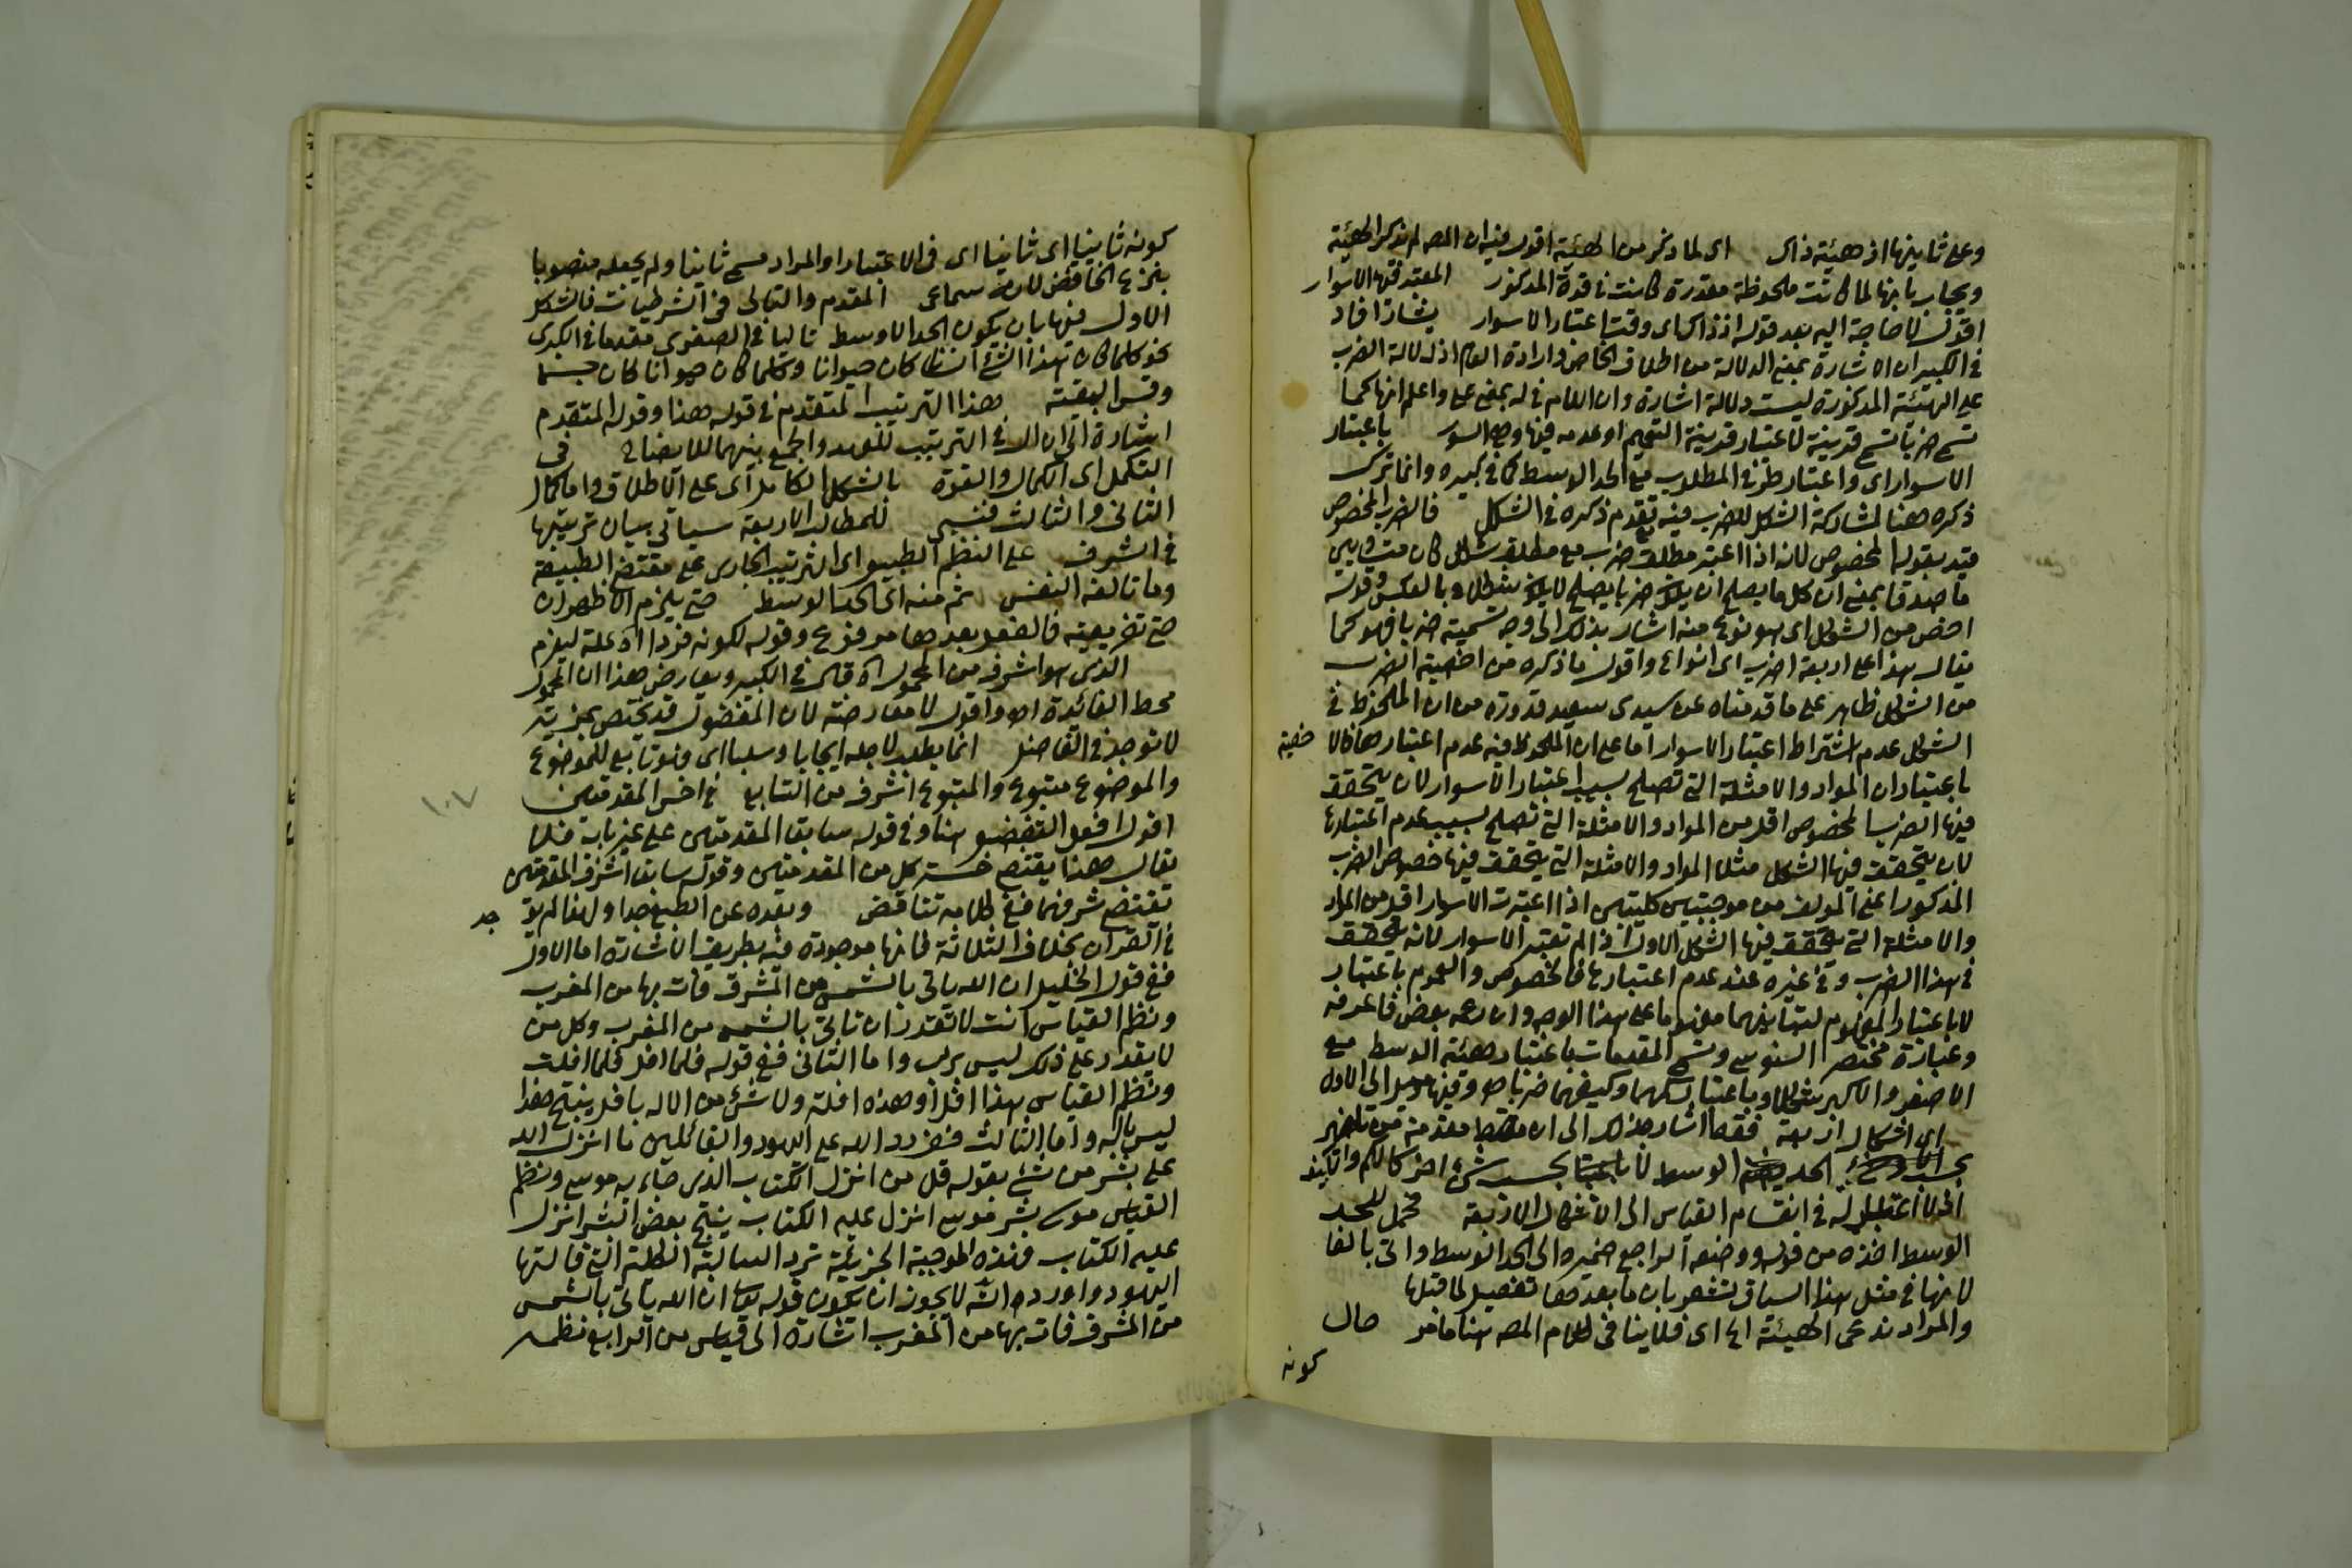 وعلى ثانيها اذ هيئة ذاك اى لما ذكر من الهيئة اقول فيه ان المص لم يذكر الهيئة
ويجاب بانها لما كانت ملحوظة مقدرة كانت فى قوة المذكور المعتبر فيها الاسوار
اقول لا حاجة اليه بعد قوله اذ ذاك اى وقت اعتبار الاسوار يشار افاد
فى الكبير ان الاشارة بمعنى الدلالة من اطلاق الخاص وارادة العام اذ دلالة الضرب
على الهيئة المذكورة ليست دلالة اشارة وان اللام فى له بمعنى على واعلم انها كما
تسمى ضربا تسمى قرينة لاعتبار قرينة التعميم او عدمه فيها وهى السور باعتبار
الاسوار اى واعتبار طرفى المطلوب مع الحد الوسط كما فى كبيره وانما ترك
ذكره هنا لمشاركة الشكل للضرب فيه بتقدم ذكره فى الشكل فالضرب المخصوص
قيد بقوله المخصوص لانه اذا اعتبر مطلق ضرب مع مطلق شكل كان متساويين
ما صدقا بمعنى ان كل ما يصلح ان يكون ضربا يصلح لان يكون شكلا وبالعكس وقوله
اخص من الشكل اى هو نوع منه اشار بذلك الى وجه تسميته ضربا فهو كما
يقال هذا على اربعة اضرب اى انواع واقول ما ذكره من اخصية الضرب
من الشكل ظاهر على ما قدمناه عن سيدى سعيد قدورة من ان الملحوظ فى
الشكل عدم اشتراط اعتبار الاسوار اما على ان الملحوظ فيه عدم اعتبارها فالا خصية
باعتبار ان المواد والامثلة التى تصلح بسبب اعتبار الاسوار لان يتحقق
فيها الضرب المخصوص اقل من المواد والامثلة التى تصلح بسبب عدم اعتبارها
لان يتحقق فيها الشكل مثلا المواد والامثلة التى يتحقق فيها خصوص الضرب
المذكور اعنى المؤلف من موجبتين كليتين اذا اعتبرت الاسوار اقل من المواد
والامثلة التى يتحقق فيها الشكل الاول اذا لم تعتبر الاسوار لانه يتحقق
فى هذا الضرب وفى غيره عند عدم اعتبارها فالخصوص والعموم باعتبار
لا باعتبار المفهوم لتباينهما مفهوما على هذا الوجه وان زعمه بعض فاعرفه
وعبارة مختصر السنوسى وتسمى المقدمات باعتبار هيئة الوسط مع
الاصغر والاكبر شكلا وباعتبار كمهما وكيفهما ضربا اه وفيها ميل الى الاول
اى اشكال اربعة فقط اشار بذلك الى ان فقط مقدمة من تاخير
بحسب الحد الوسط لا بحسب شىء اخر كالكم والكيف
اذ لا اعتبار له فى انقسام القياس الى الاشكال الاربعة حمل للحد
الوسط اخذه من قوله ووضعه الراجع ضميره الى الحد الوسط واتى بالفا
لانها فى مثل هذا السياق تشعر بان ما بعدها تفصيل لما قبلها
والمراد ندعى الهيئة الخ اى فلا ينافى كلام المص هنا ما مر حال
كونه
كونه ثانيا اى ثانيا اى فى الاعتبار او المراد مسمى ثانيا ولم يجعله منصوبا
بنزع الخافض لانه سماعى المقدم والتالى فى الشرطيات فالشكل
الاول فيها بان يكون الحد الاوسط تاليا فى الصغرى مقدما فى الكبرى
نحو كلما كان هذا الشئ انسانا كان حيوانا وكلما كان حيوانا كان جسما
وقس البقية هذا الترتيب المتقدم فى قوله هنا وقوله المتقدم
اشارة الى ان ال فى الترتيب للعهد والجمع بينهما للايضاح فى
التكمل اى الكمال والقوة بالشكل الكامل اى على الاطلاق واما كمال
الثانى والثالث فنسبى للمطالب الاربعة سياتى بيان ترتيبها
فى الشرف على النظم الطبيعى اى الترتيب الجارى على مقتضى الطبيعة
وما تالفه النفس ثم منه اى الحد الوسط حتى يلزم الاظهر ان
حتى تفريعية فالفعل بعدها مرفوع وقوله لكونه فردا الخ علة ليلزم
الذى هو اشرف من المحمول اه قال فى الكبير ويعارض هذا ان المحمول
محط الفائدة اه واقول لا معارضة لان المفضول قد يختص بمزية
لا توجد فى الفاضل انما يطلب لاجله ايجابا وسلبا اى فهو تابع للموضوع
والموضوع متبوع والمتبوع اشرف من التابع فى اخس المقدمتين
اقول افعل التفضيل هنا وفى قوله سابقا المقدمتين على غير بابه فلا
يقال هنا يقتضى خسة كل من المقدمتين وقوله سابقا اشرف المقدمتين
تقتضى شرفهما ففى كلامه تناقض وبعده عن الطبع جدا ولهذا لم يقع جد
فى القرآن بخلاف الثلاثة فانها موجودة فيه بطريق الاشارة اما الاول
ففى قول الخليل ان الله ياتى بالشمس من المشرق فات بها من المغرب
ونظم القياس انت لا تقدر ان تاتى بالشمس من المغرب وكل من
لا يقدر على ذلك ليس برب واما الثانى ففى قوله فلما افل فلما افلت
ونظم القياس هذا افل او هذه افلة ولا شئ من الاله بافل ينتج هذا
ليس باله واما الثالث ففى رد الله على اليهود القائلين ما انزل الله
على بشر من شئ بقوله قل من انزل الكتاب الذى جاء به موسى ونظم
القياس موسى بشر موسى انزل عليه الكتاب ينتج بعض البشر انزل
عليه الكتاب فهذه الموجبة الجزئية ترد السالبة الكلية التى قالتها
اليهود واورد انه لا يجوز ان يكون قوله تعالى ان الله ياتى بالشمس
من المشرق فات بها من المغرب اشارة الى قياس من الرابع نظمه
١٠٧